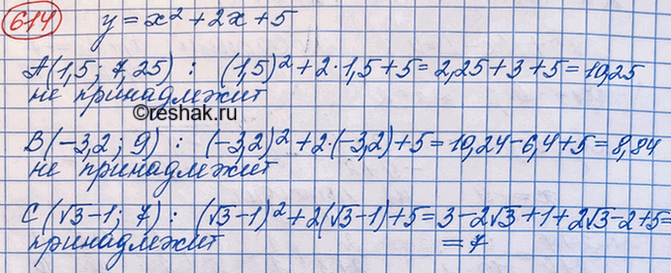 614 y = x² + 2x + 5
A(1,5; 7,25) : (1,5)² + 2·1,5 + 5 = 2,25 + 3 + 5 = 10,25
не принадлежит
©reshak.ru
B(−3,2; 9) : (−3,2)² + 2·(−3,2) + 5 = 10,24 − 6,4 + 5 = 8,84
не принадлежит
C(√3−1; 7) : (√3−1)² + 2(√3−1) + 5 = 3 − 2√3 + 1 + 2√3 − 2 + 5 =
принадлежит = 7